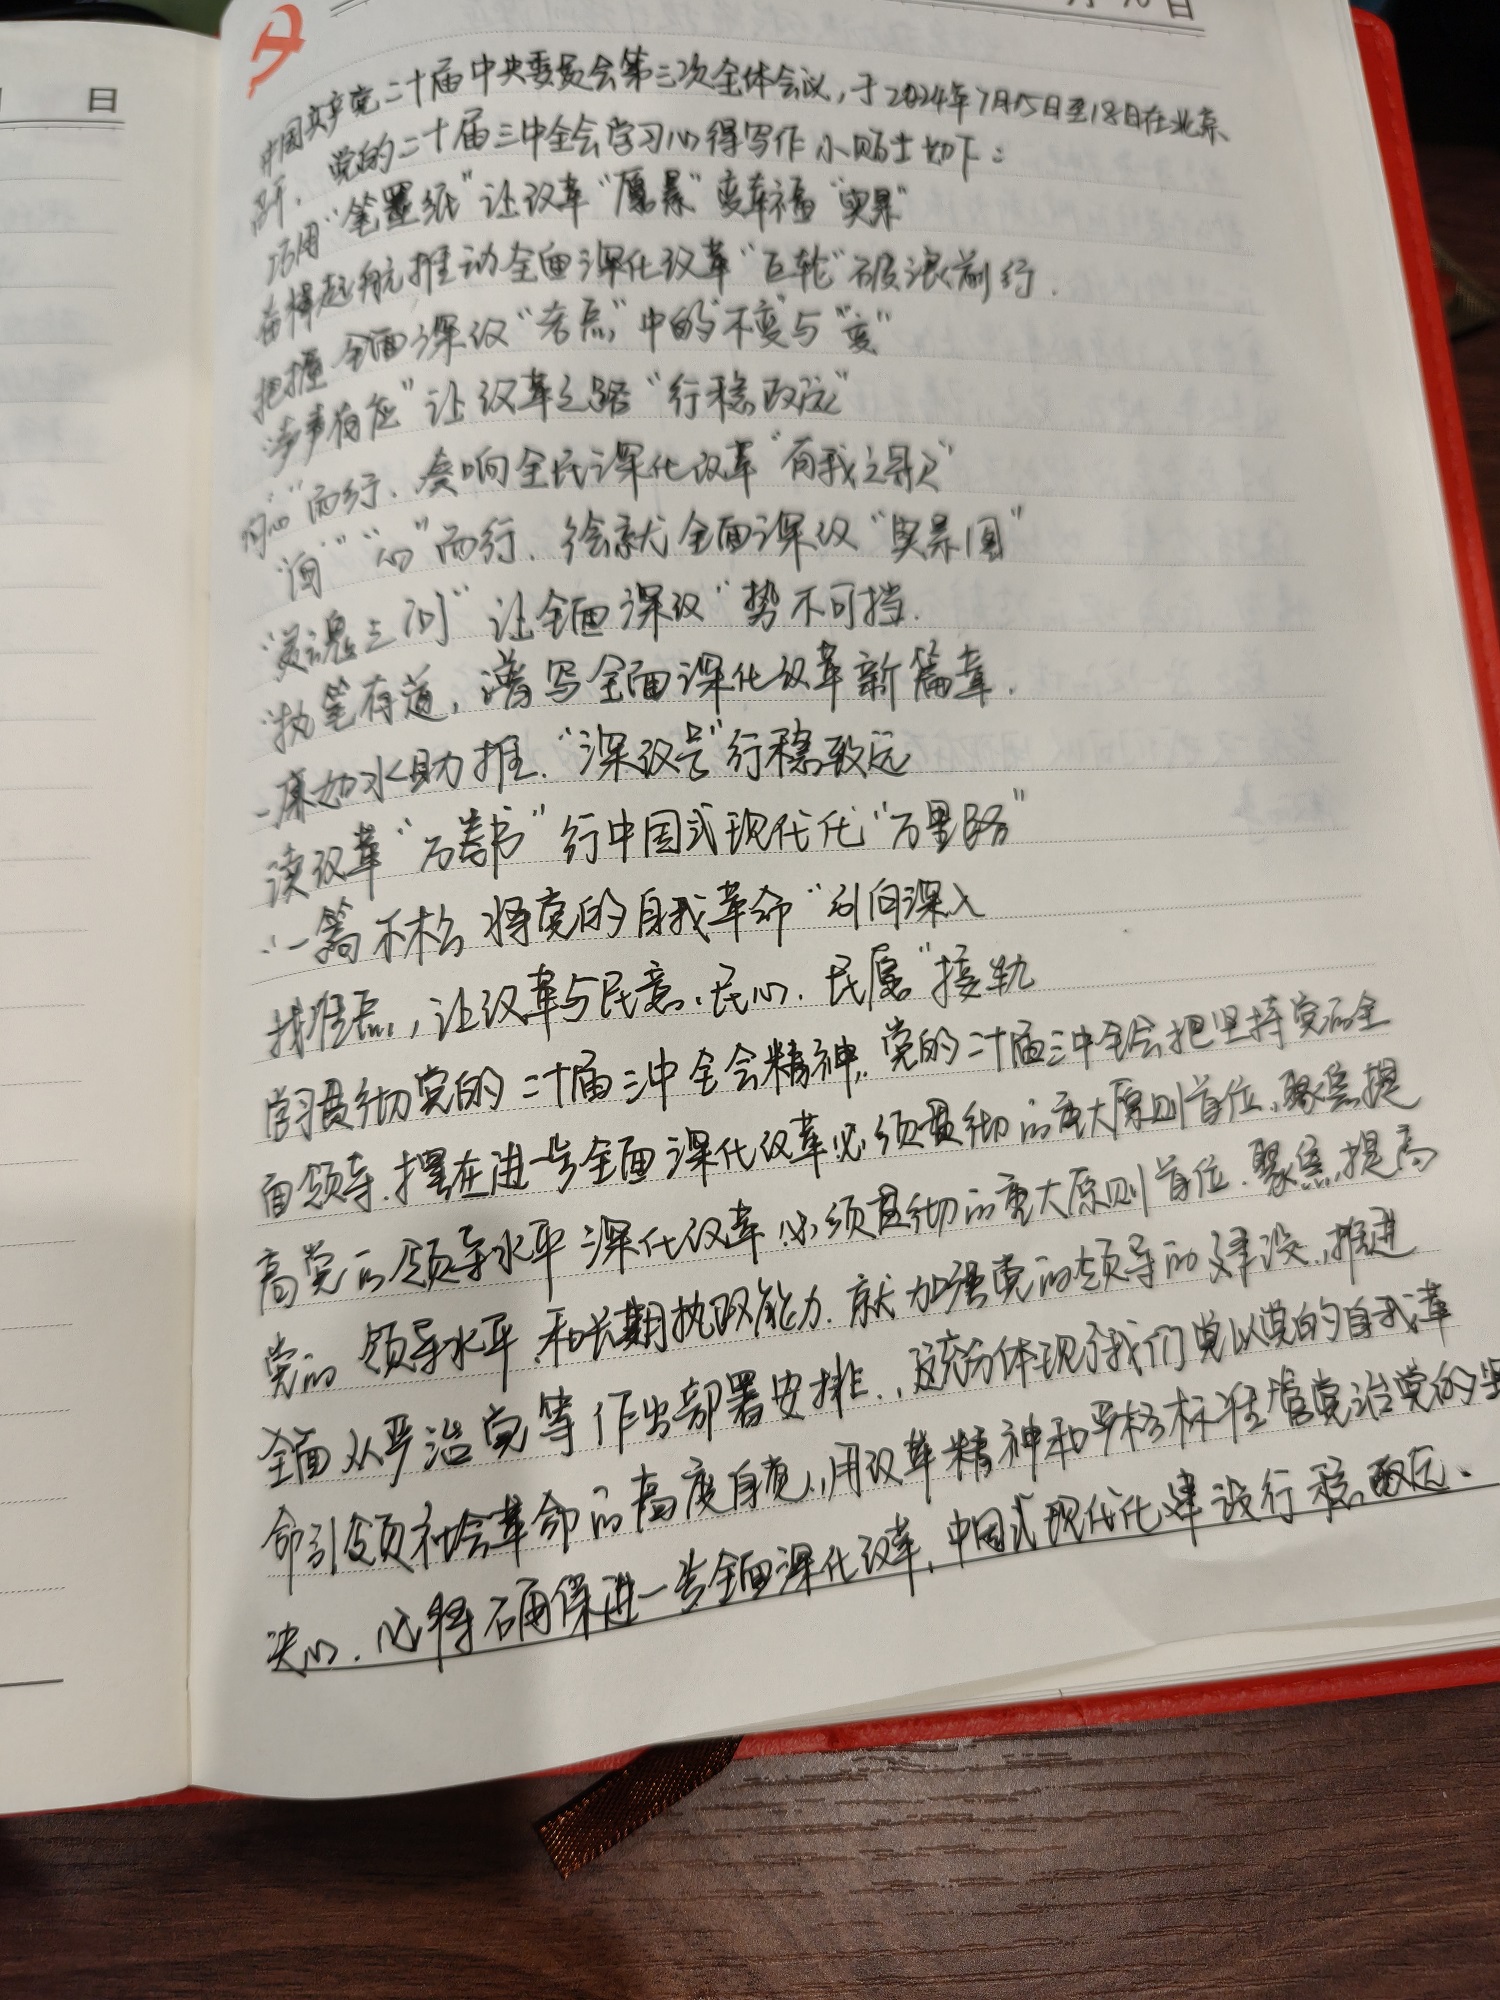 日
月10日
中国共产党二十届中央委员会第三次全体会议，于2024年7月15日至18日在北京
召开，党的二十届三中全会学习心得写作小贴士如下：
巧用“笔墨纸”让改革“愿景”变幸福“实景”
奋楫起航推动全面深化改革“巨轮”破浪前行.
把握全面深改“考点”中的“不变”与“变”
“声声有应”让改革之路“行稳致远”
“心”而行、奏响全民深化改革“有我之歌”
“向”“心”而行、绘就全面深改“实景图”
“灵魂三问”让全面深改“势不可挡.
“执笔有道，谱写全面深化改革新篇章.
廉如水助推.“深改号”行稳致远
读改革“万卷书”行中国式现代化“万里路”
“一篙不松 将党的自我革命“引向深入
找准点，让改革与民意、民心、民愿“接轨
学习贯彻党的二十届三中全会精神，党的二十届三中全会把坚持党的全
面领导、摆在进一步全面深化改革必须贯彻的重大原则首位、聚焦提
高党的领导水平 深化改革必须贯彻的重大原则首位、聚焦提高
党的领导水平和长期执政能力、就加强党的领导的建设、推进
全面从严治党等作出部署安排，这充分体现了我们党以党的自我革
命引领社会革命的高度自觉，用改革精神和严格标准管党治党的坚
决心、必将确保进一步全面深化改革、中国式现代化建设行稳致远.